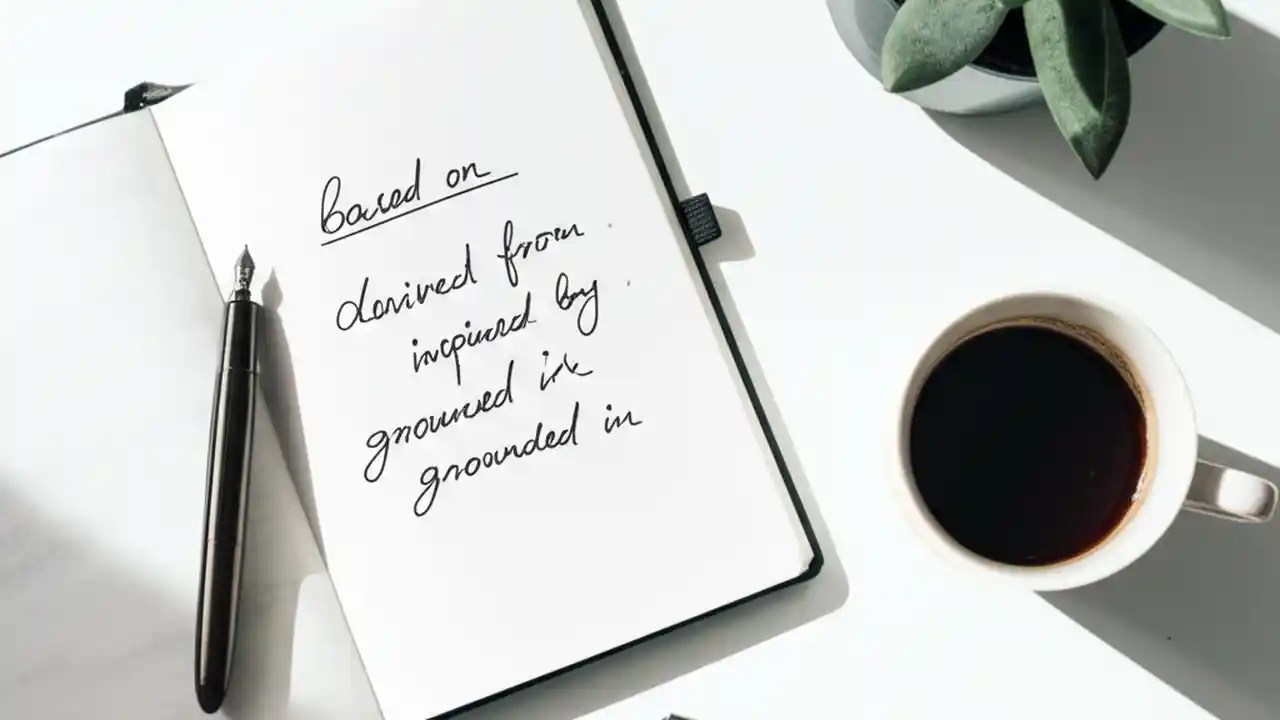 Based on
derived from
inspired by
grounded in
grounded in